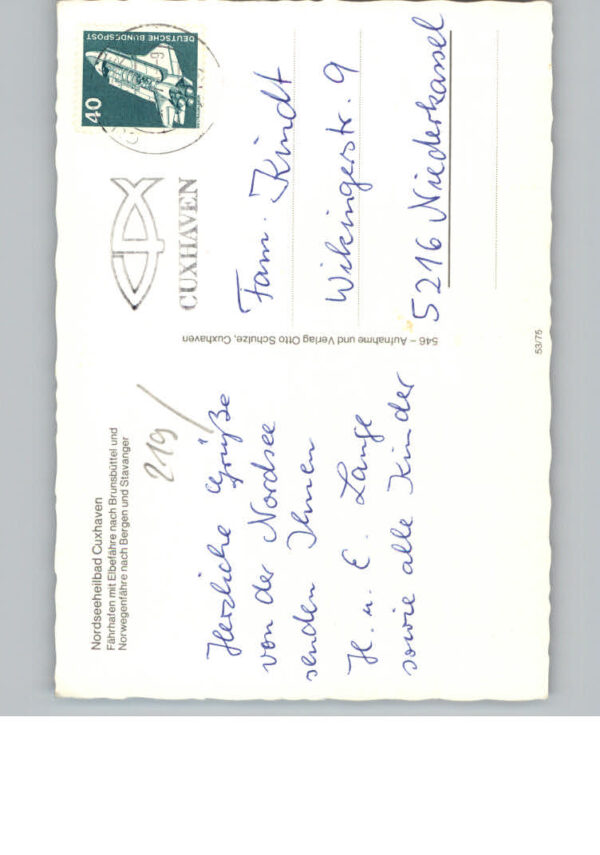 Nordseeheilbad Cuxhaven
Fährhafen mit Elbefähre nach Brunsbüttel und
Norwegenfähre nach Bergen und Stavanger
219/
Herzliche Grüße
von der Nordsee
senden Ihnen
H. u. E. Lange
sowie alle Kinder
546 – Aufnahme und Verlag Otto Schulze, Cuxhaven
DEUTSCHE BUNDESPOST
40
CUXHAVEN
Fam. Kindt
Wikingerstr. 9
5216 Niederkassel
53/75